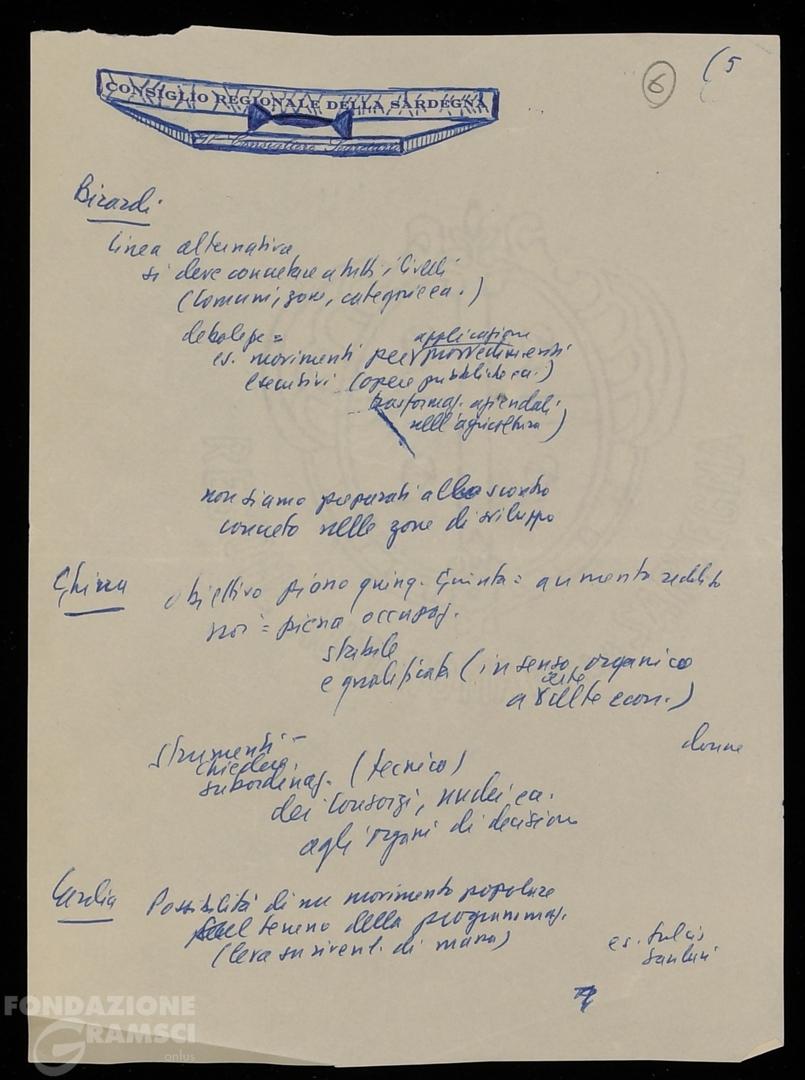 (5
6
CONSIGLIO REGIONALE DELLA SARDEGNA
Il Consigliere Segretario
Birardi
linea alternativa
si deve concretare a tutti i livelli
(Comuni, zone, categorie ecc.)
debolezze =
applicazione
es. movimenti per provvedimenti
esecutivi (opere pubbliche ecc.)
trasformaz. aziendali
nell'agricoltura)
non siamo preparati allo scontro
concreto nelle zone di sviluppo
Ghirra
obiettivo piano quinq. Giunta = aumento reddito
noi = piena occupaz.
stabile
e qualificata (in senso organico
a scelte econ.)
donne
strumenti -
chiedere
subordinaz. (tecnico)
dei Consorzi, nuclei ecc.
agli organi di decisione
Cardia
Possibilità di un movimento popolare
sul terreno della programmaz.
(leva su rivend. di massa)
es. Sulcis
Sanluri
FONDAZIONE
GRAMSCI
onlus